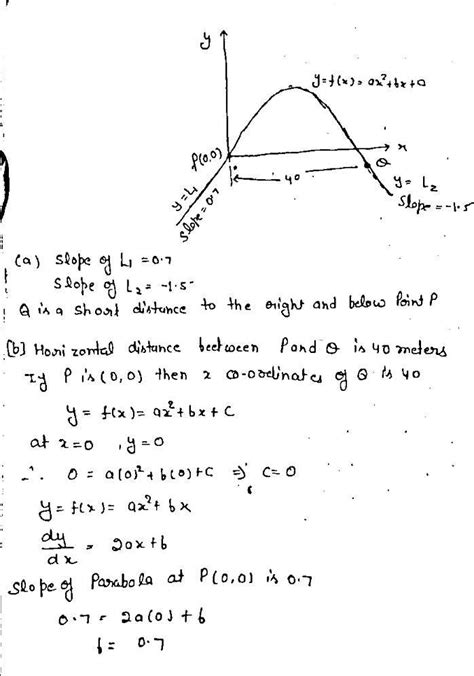 y
y=f(x)=ax²+bx+0
P(0,0)
x
40
Q
y=L₁
Slope=0.7
y=L₂
Slope=-1.5
(a) Slope of L₁=0.7
Slope of L₂=-1.5
Q is a short distance to the right and below Point P
(b) Hori zontal distance beetween P and Q is 40 meters
If P is (0,0) then x co-ordinates of Q is 40
y = f(x)= ax²+bx+C
at x=0 , y=0
∴ 0 = a(0)²+b(0)+C ⇒ C=0
y=f(x)= ax²+bx
dy/dx = 2ax+b
Slope of Parabola at P(0,0) is 0.7
0.7 = 2a(0)+b
b= 0.7